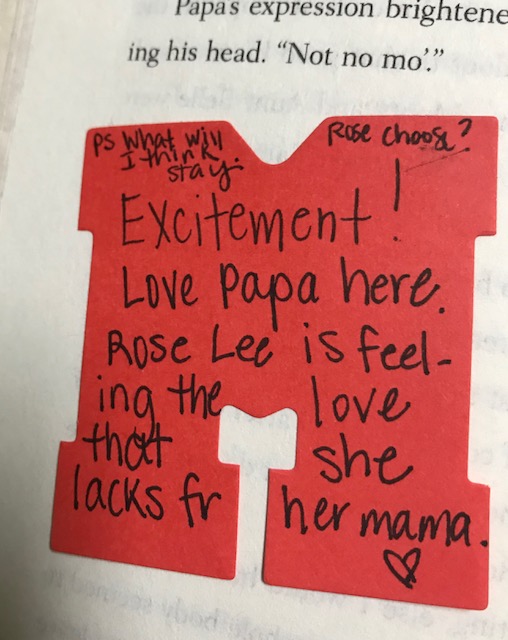 Papa's expression brightene
ing his head. "Not no mo'."
PS What will Rose choose?
I think
stay.
Excitement!
Love Papa here.
Rose Lee is feel-
ing the love
that she
lacks fr her mama.
♡